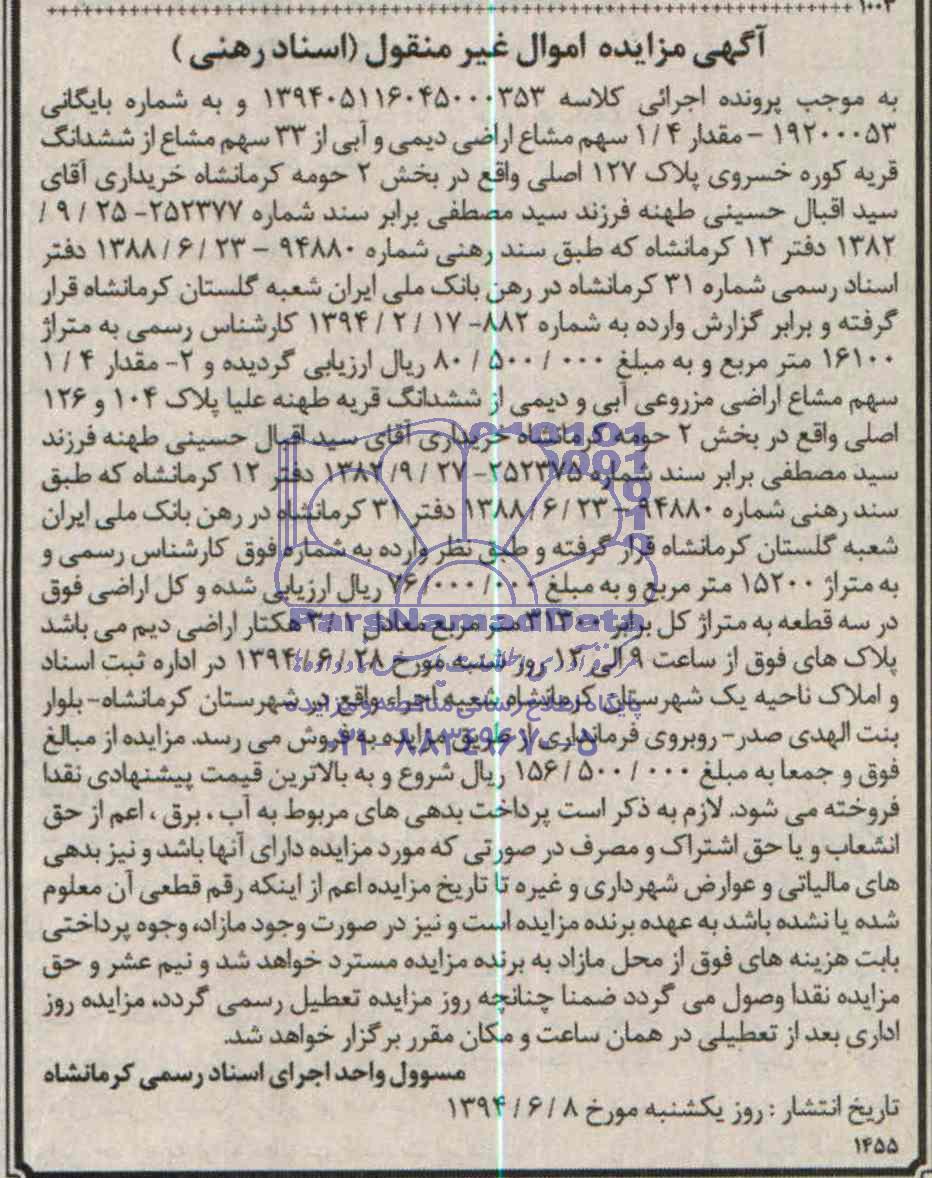 ۱۰۰۳
آگهی مزایده اموال غیر منقول (اسناد رهنی)
به موجب پرونده اجرائی کلاسه ۱۳۹۴۰۵۱۱۶۰۴۵۰۰۰۳۵۳ و به شماره بایگانی
۱۹۲۰۰۰۵۳ - مقدار ۴ / ۱ سهم مشاع اراضی دیمی و آبی از ۳۳ سهم مشاع از ششدانگ
قریه کوره خسروی پلاک ۱۲۷ اصلی واقع در بخش ۲ حومه کرمانشاه خریداری آقای
سید اقبال حسینی طهنه فرزند سید مصطفی برابر سند شماره ۲۵۲۳۷۷- ۲۵ / ۹ /
۱۳۸۲ دفتر ۱۲ کرمانشاه که طبق سند رهنی شماره ۹۴۸۸۰ - ۲۳ / ۶ / ۱۳۸۸ دفتر
اسناد رسمی شماره ۳۱ کرمانشاه در رهن بانک ملی ایران شعبه گلستان کرمانشاه قرار
گرفته و برابر گزارش وارده به شماره ۸۸۲- ۱۷ / ۲ / ۱۳۹۴ کارشناس رسمی به متراژ
۱۶۱۰۰ متر مربع و به مبلغ ۰۰۰ / ۵۰۰ / ۸۰ ریال ارزیابی گردیده و ۲- مقدار ۴ / ۱
سهم مشاع اراضی مزروعی آبی و دیمی از ششدانگ قریه طهنه علیا پلاک ۱۰۴ و ۱۲۶
اصلی واقع در بخش ۲ حومه کرمانشاه خریداری آقای سید اقبال حسینی طهنه فرزند
سید مصطفی برابر سند شماره ۲۵۲۳۷۵- ۲۷ / ۹/ ۱۳۸۲ دفتر ۱۲ کرمانشاه که طبق
سند رهنی شماره ۹۴۸۸۰ - ۲۳ / ۶ / ۱۳۸۸ دفتر ۳۱ کرمانشاه در رهن بانک ملی ایران
شعبه گلستان کرمانشاه قرار گرفته و طبق نظر وارده به شماره فوق کارشناس رسمی و
به متراژ ۱۵۲۰۰ متر مربع و به مبلغ ۰۰۰/ ۰۰۰/ ۷۶ ریال ارزیابی شده و کل اراضی فوق
در سه قطعه به متراژ کل برابر ۳۱۳۰۰ متر مربع معادل ۳/۱ هکتار اراضی دیم می باشد
پلاک های فوق از ساعت ۹ الی ۱۲ روز شنبه مورخ ۲۸ / ۶ / ۱۳۹۴ در اداره ثبت اسناد
و املاک ناحیه یک شهرستان کرمانشاه شعبه اجرا واقع در شهرستان کرمانشاه- بلوار
بنت الهدی صدر- روبروی فرمانداری از طریق مزایده به فروش می رسد. مزایده از مبالغ
فوق و جمعا به مبلغ ۰۰۰ / ۵۰۰ / ۱۵۶ ریال شروع و به بالاترین قیمت پیشنهادی نقدا
فروخته می شود. لازم به ذکر است پرداخت بدهی های مربوط به آب ، برق ، اعم از حق
انشعاب و یا حق اشتراک و مصرف در صورتی که مورد مزایده دارای آنها باشد و نیز بدهی
های مالیاتی و عوارض شهرداری و غیره تا تاریخ مزایده اعم از اینکه رقم قطعی آن معلوم
شده یا نشده باشد به عهده برنده مزایده است و نیز در صورت وجود مازاد، وجوه پرداختی
بابت هزینه های فوق از محل مازاد به برنده مزایده مسترد خواهد شد و نیم عشر و حق
مزایده نقدا وصول می گردد ضمنا چنانچه روز مزایده تعطیل رسمی گردد، مزایده روز
اداری بعد از تعطیلی در همان ساعت و مکان مقرر برگزار خواهد شد.
مسوول واحد اجرای اسناد رسمی کرمانشاه
تاریخ انتشار : روز یکشنبه مورخ ۸ / ۶ / ۱۳۹۴
۱۴۵۵
ParsNamadData
پایگاه اطلاع رسانی مناقصه و مزایده
۰۲۱-۸۸۳۴۹۶۷۰-۵